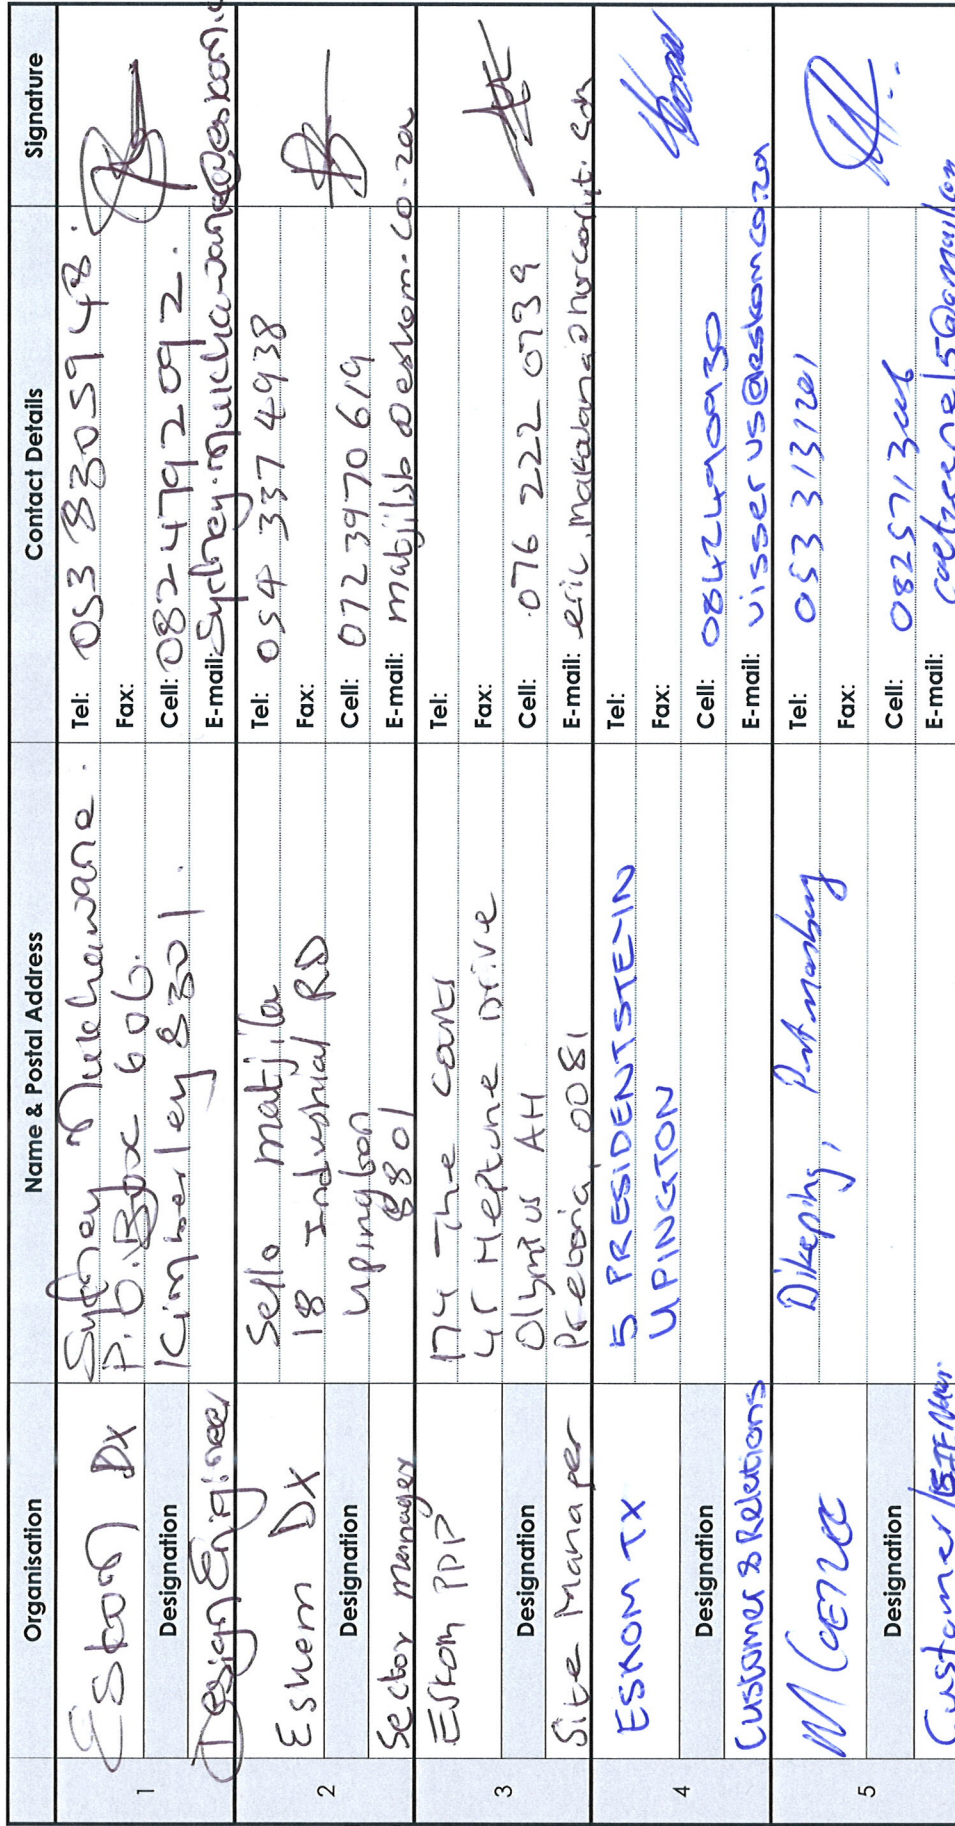 Organisation
Name & Postal Address
Contact Details
Signature
1
Eskom Dx
Designation
Design Engineer
Sydney
P.O. Box 606.
Kimberley 8301.
Tel: 053 8305948.
Fax:
Cell: 0824792092.
E-mail:
2
Eskom DX
Designation
Sector manager
Sello matjila
18 Industrial RD
upington
8801
Tel: 054 337 4938
Fax:
Cell: 0723970619
E-mail: matjilsb@eskom.co.za
3
Eskom PPP
Designation
Site Manager
174 The
45 Neptune Drive
Olympus AH
Pretoria, 0081
Tel:
Fax:
Cell: 076 222 0739
E-mail:
4
ESKOM TX
Designation
Customer Relations
5 PRESIDENT STEYN
UPINGTON
Tel:
Fax:
Cell: 0842490930
E-mail: visservs@eskom.co.za
5
M Coetzee
Designation
Customer
Tel: 053 3131201
Fax:
Cell:
E-mail: